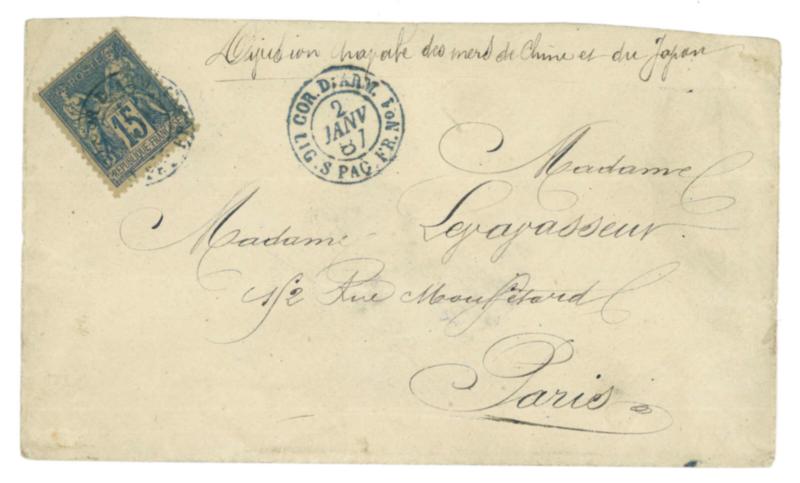 Division navale des mers de Chine et du Japon
POSTES
15
REPUBLIQUE FRANÇAISE
COR. D. ARM. LIG. S PAQ. FR. 1 No N.
2
JANV
87
Madame
Madame Levavasseur
152 Rue Mouffetard
Paris